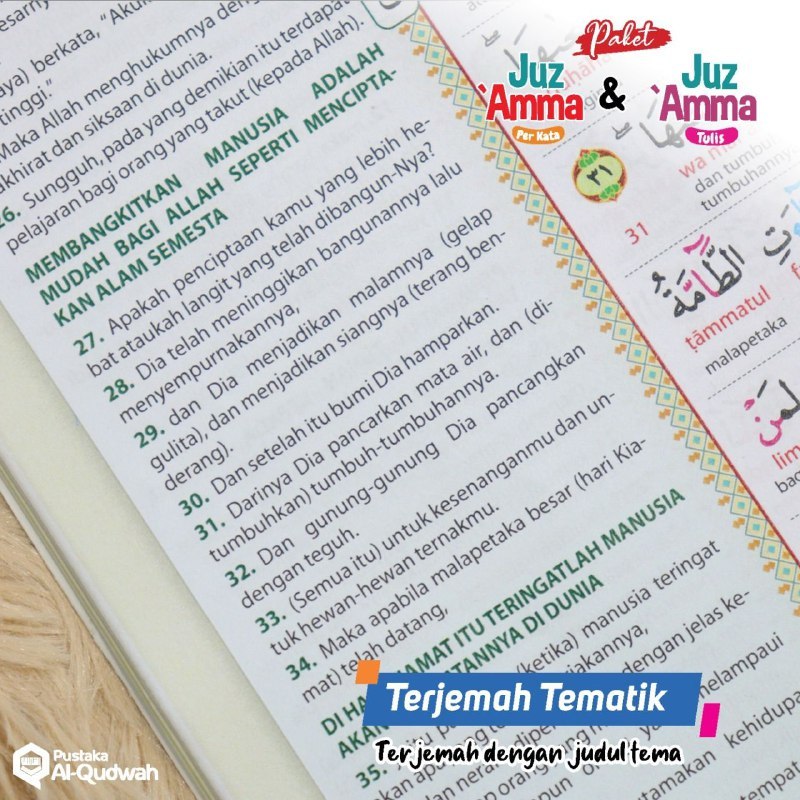 Paket
Juz
'Amma
Per Kata
&
Juz
'Amma
Tulis
berkata, "Aku
Maka Allah menghukumnya dengan
akhirat dan siksaan di dunia.
26. Sungguh, pada yang demikian itu terdapat
pelajaran bagi orang yang takut (kepada Allah).
MEMBANGKITKAN MANUSIA ADALAH
MUDAH BAGI ALLAH SEPERTI MENCIPTA-
KAN ALAM SEMESTA
27. Apakah penciptaan kamu yang lebih he-
bat ataukah langit yang telah dibangun-Nya?
28. Dia telah meninggikan bangunannya lalu
menyempurnakannya,
29. dan Dia menjadikan malamnya (gelap
gulita), dan menjadikan siangnya (terang ben-
derang).
30. Dan setelah itu bumi Dia hamparkan.
31. Darinya Dia pancarkan mata air, dan (di-
tumbuhkan) tumbuh-tumbuhannya.
32. Dan gunung-gunung Dia pancangkan
dengan teguh.
33. (Semua itu) untuk kesenanganmu dan un-
tuk hewan-hewan ternakmu.
34. Maka apabila malapetaka besar (hari Kia-
mat) telah datang,
ITU TERINGATLAH MANUSIA
DI DUNIA
(ketika) manusia teringat
dengan jelas ke-
35.
melampaui
kehidupa
٣١
wa
dan tumbu
tumbuhanny
31
الطَّآمَّةُ
ṭāmmatul
malapetaka
lim
Terjemah Tematik
Terjemah dengan judul tema
Pustaka
Al-Qudwah